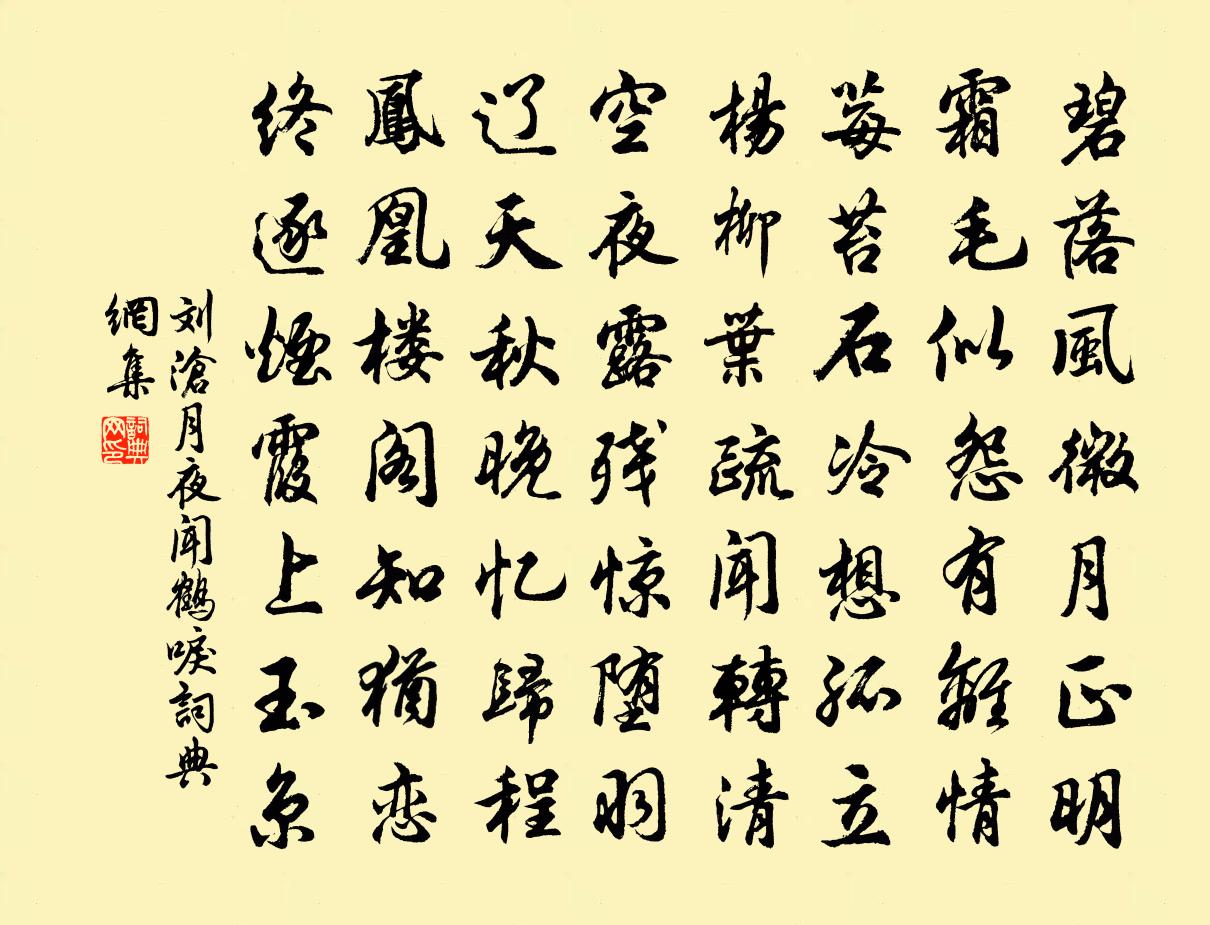 碧落風微月正明
霜毛似怨有離情
莓苔石冷想孤立
楊柳葉疏闻轉清
空夜露残惊堕羽
辽天秋晚忆歸程
鳳凰楼阁知猶恋
终逐煙霞上玉京
刘滄月夜闻鶴唳詞典
網集
詞典
网印